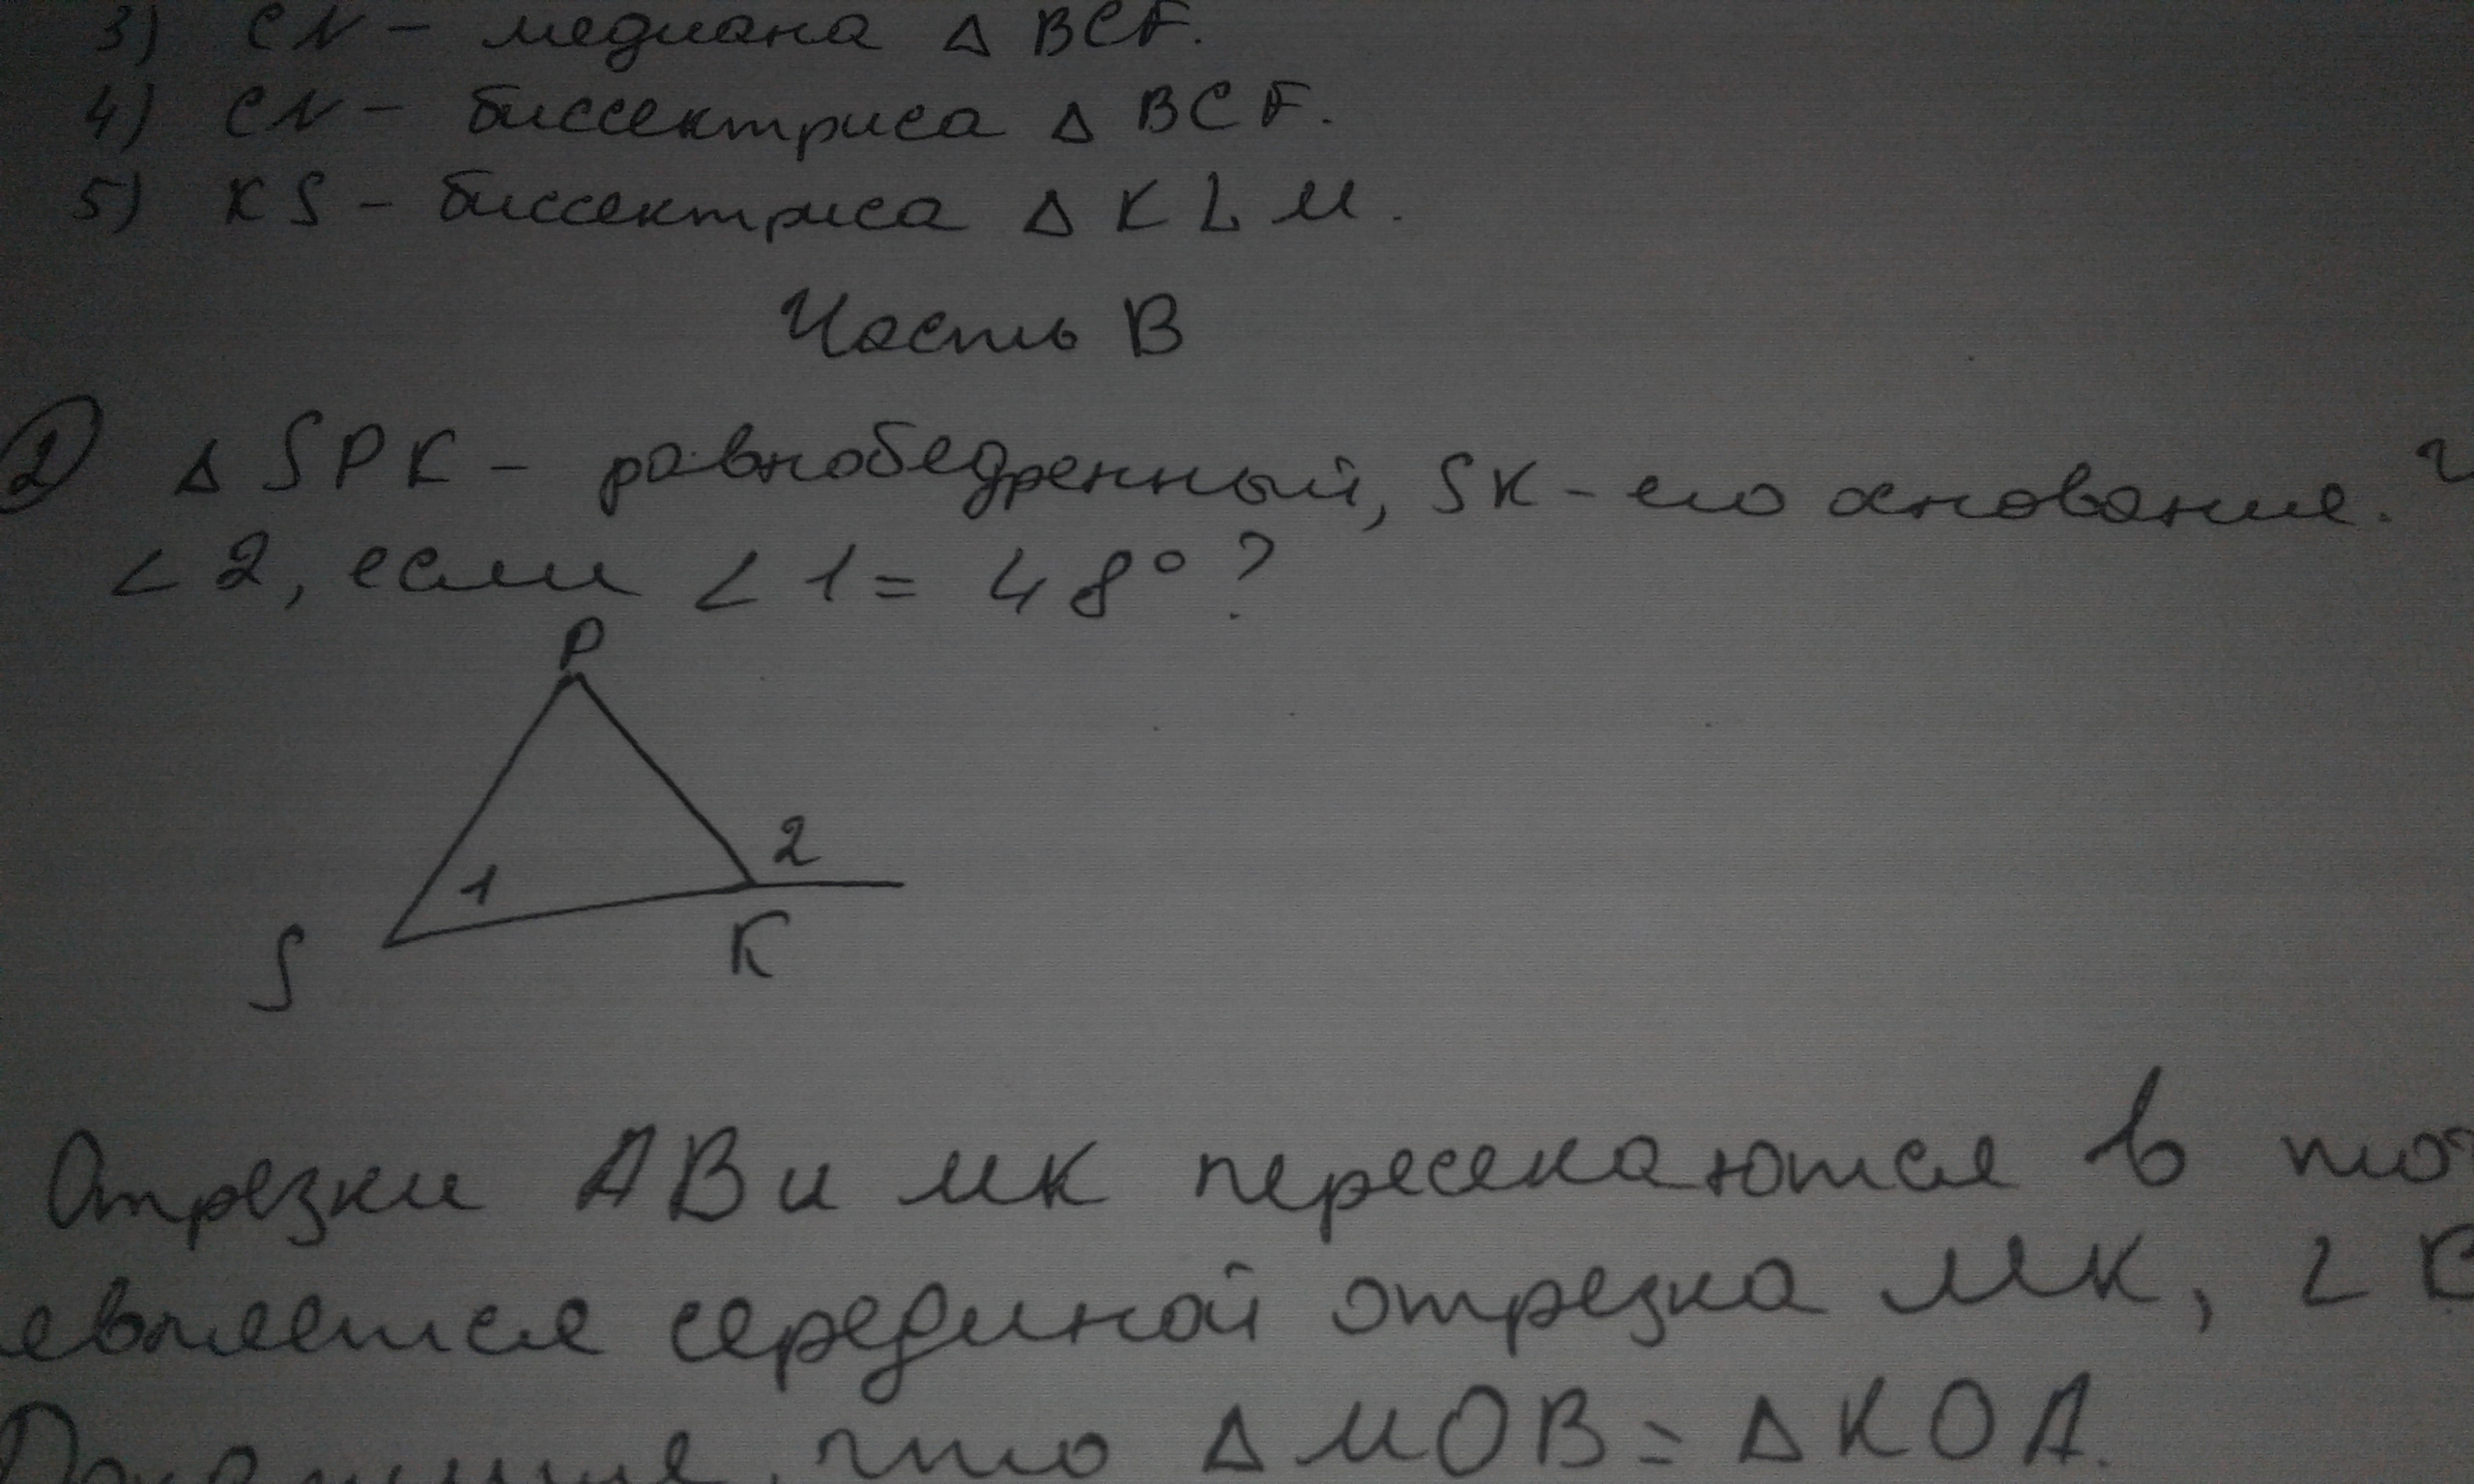 3) CN - медиана Δ BCF.
4) CN - биссектриса Δ BCF.
5) KS - биссектриса Δ KLM.
Часть В
Δ SPK - равнобедренный, SK - его основание.
∠2, если ∠1 = 48°?
P
2
1
K
S
Отрезки AB и MK пересекаются в
является серединой отрезка MK, ∠
что Δ MOB = Δ KOA.